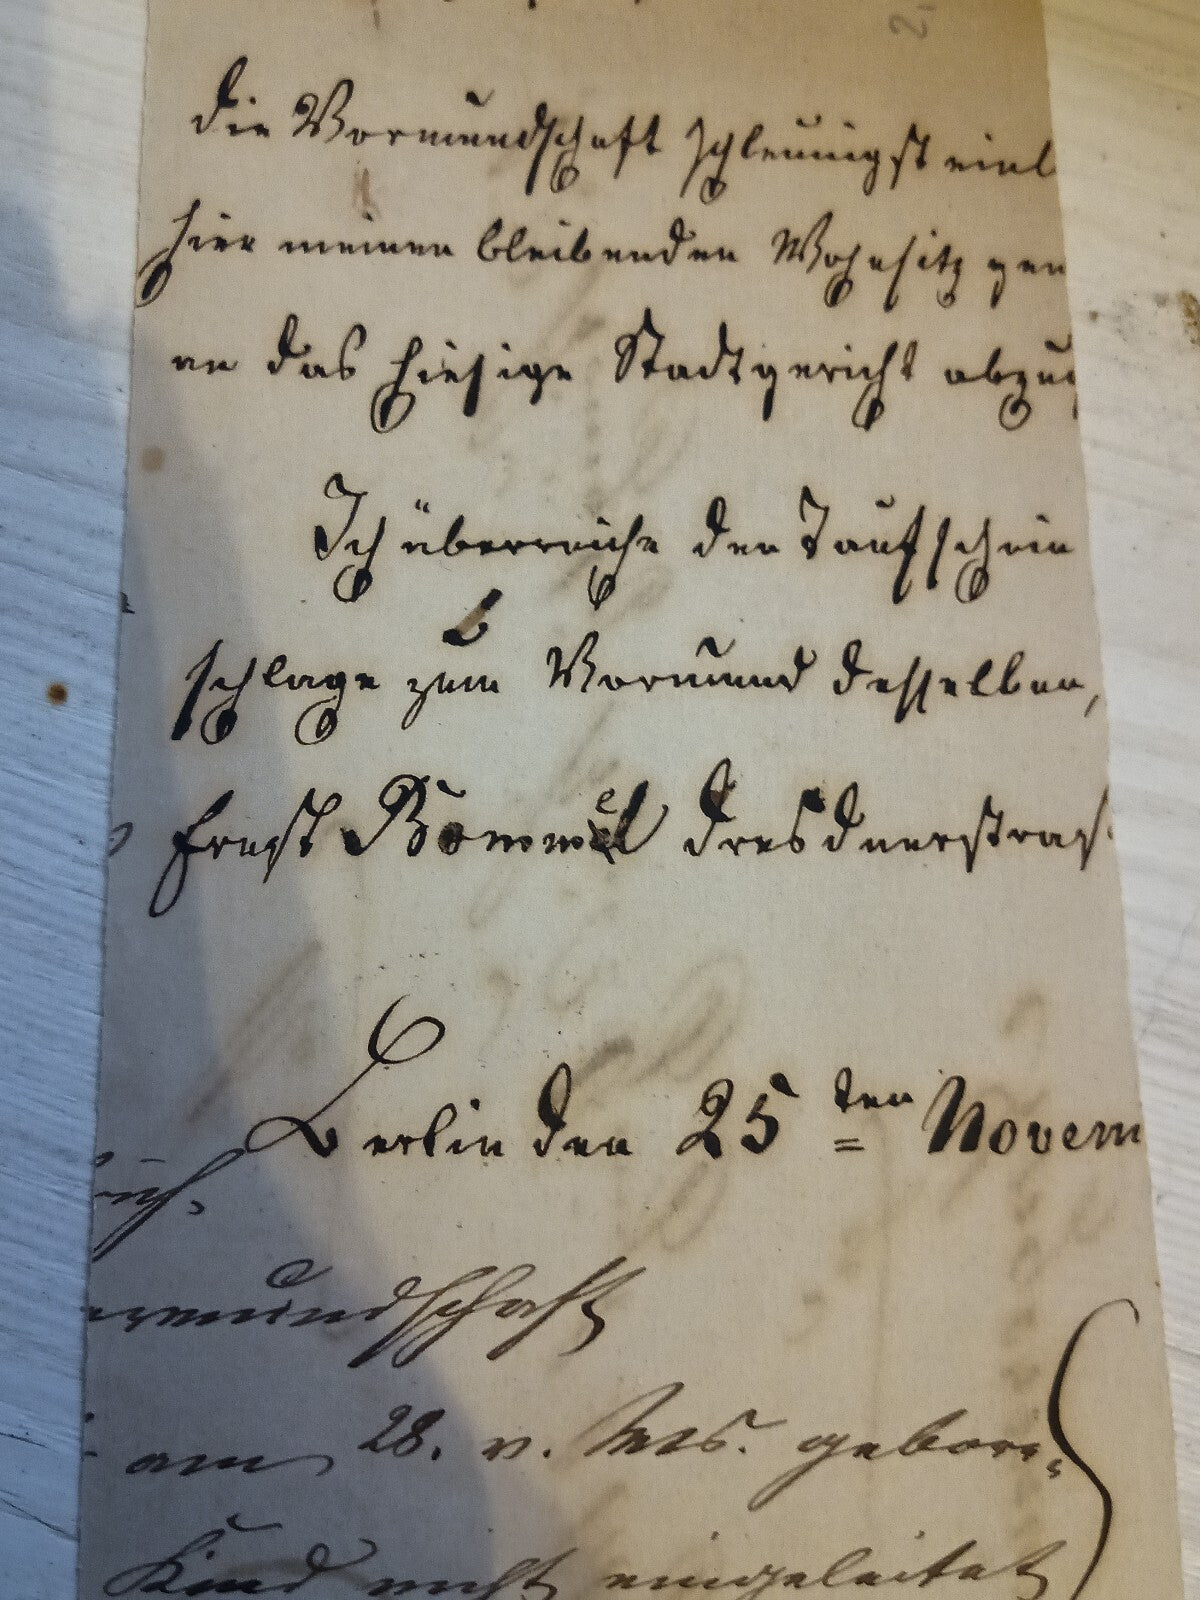 2.
die Vormundschaft schleunigst einl
hier meinen bleibenden Wohnsitz gen
an das hiesige Stadtgericht abzug
Ich überreiche den Taufschein
schlage zum Vormund desselben,
Ernst Bommel Dresdnerstraß
Berlin den 25ten Novem
rmundschaft
am 28. v. Mts. gebore
Kind nicht eingeleitet